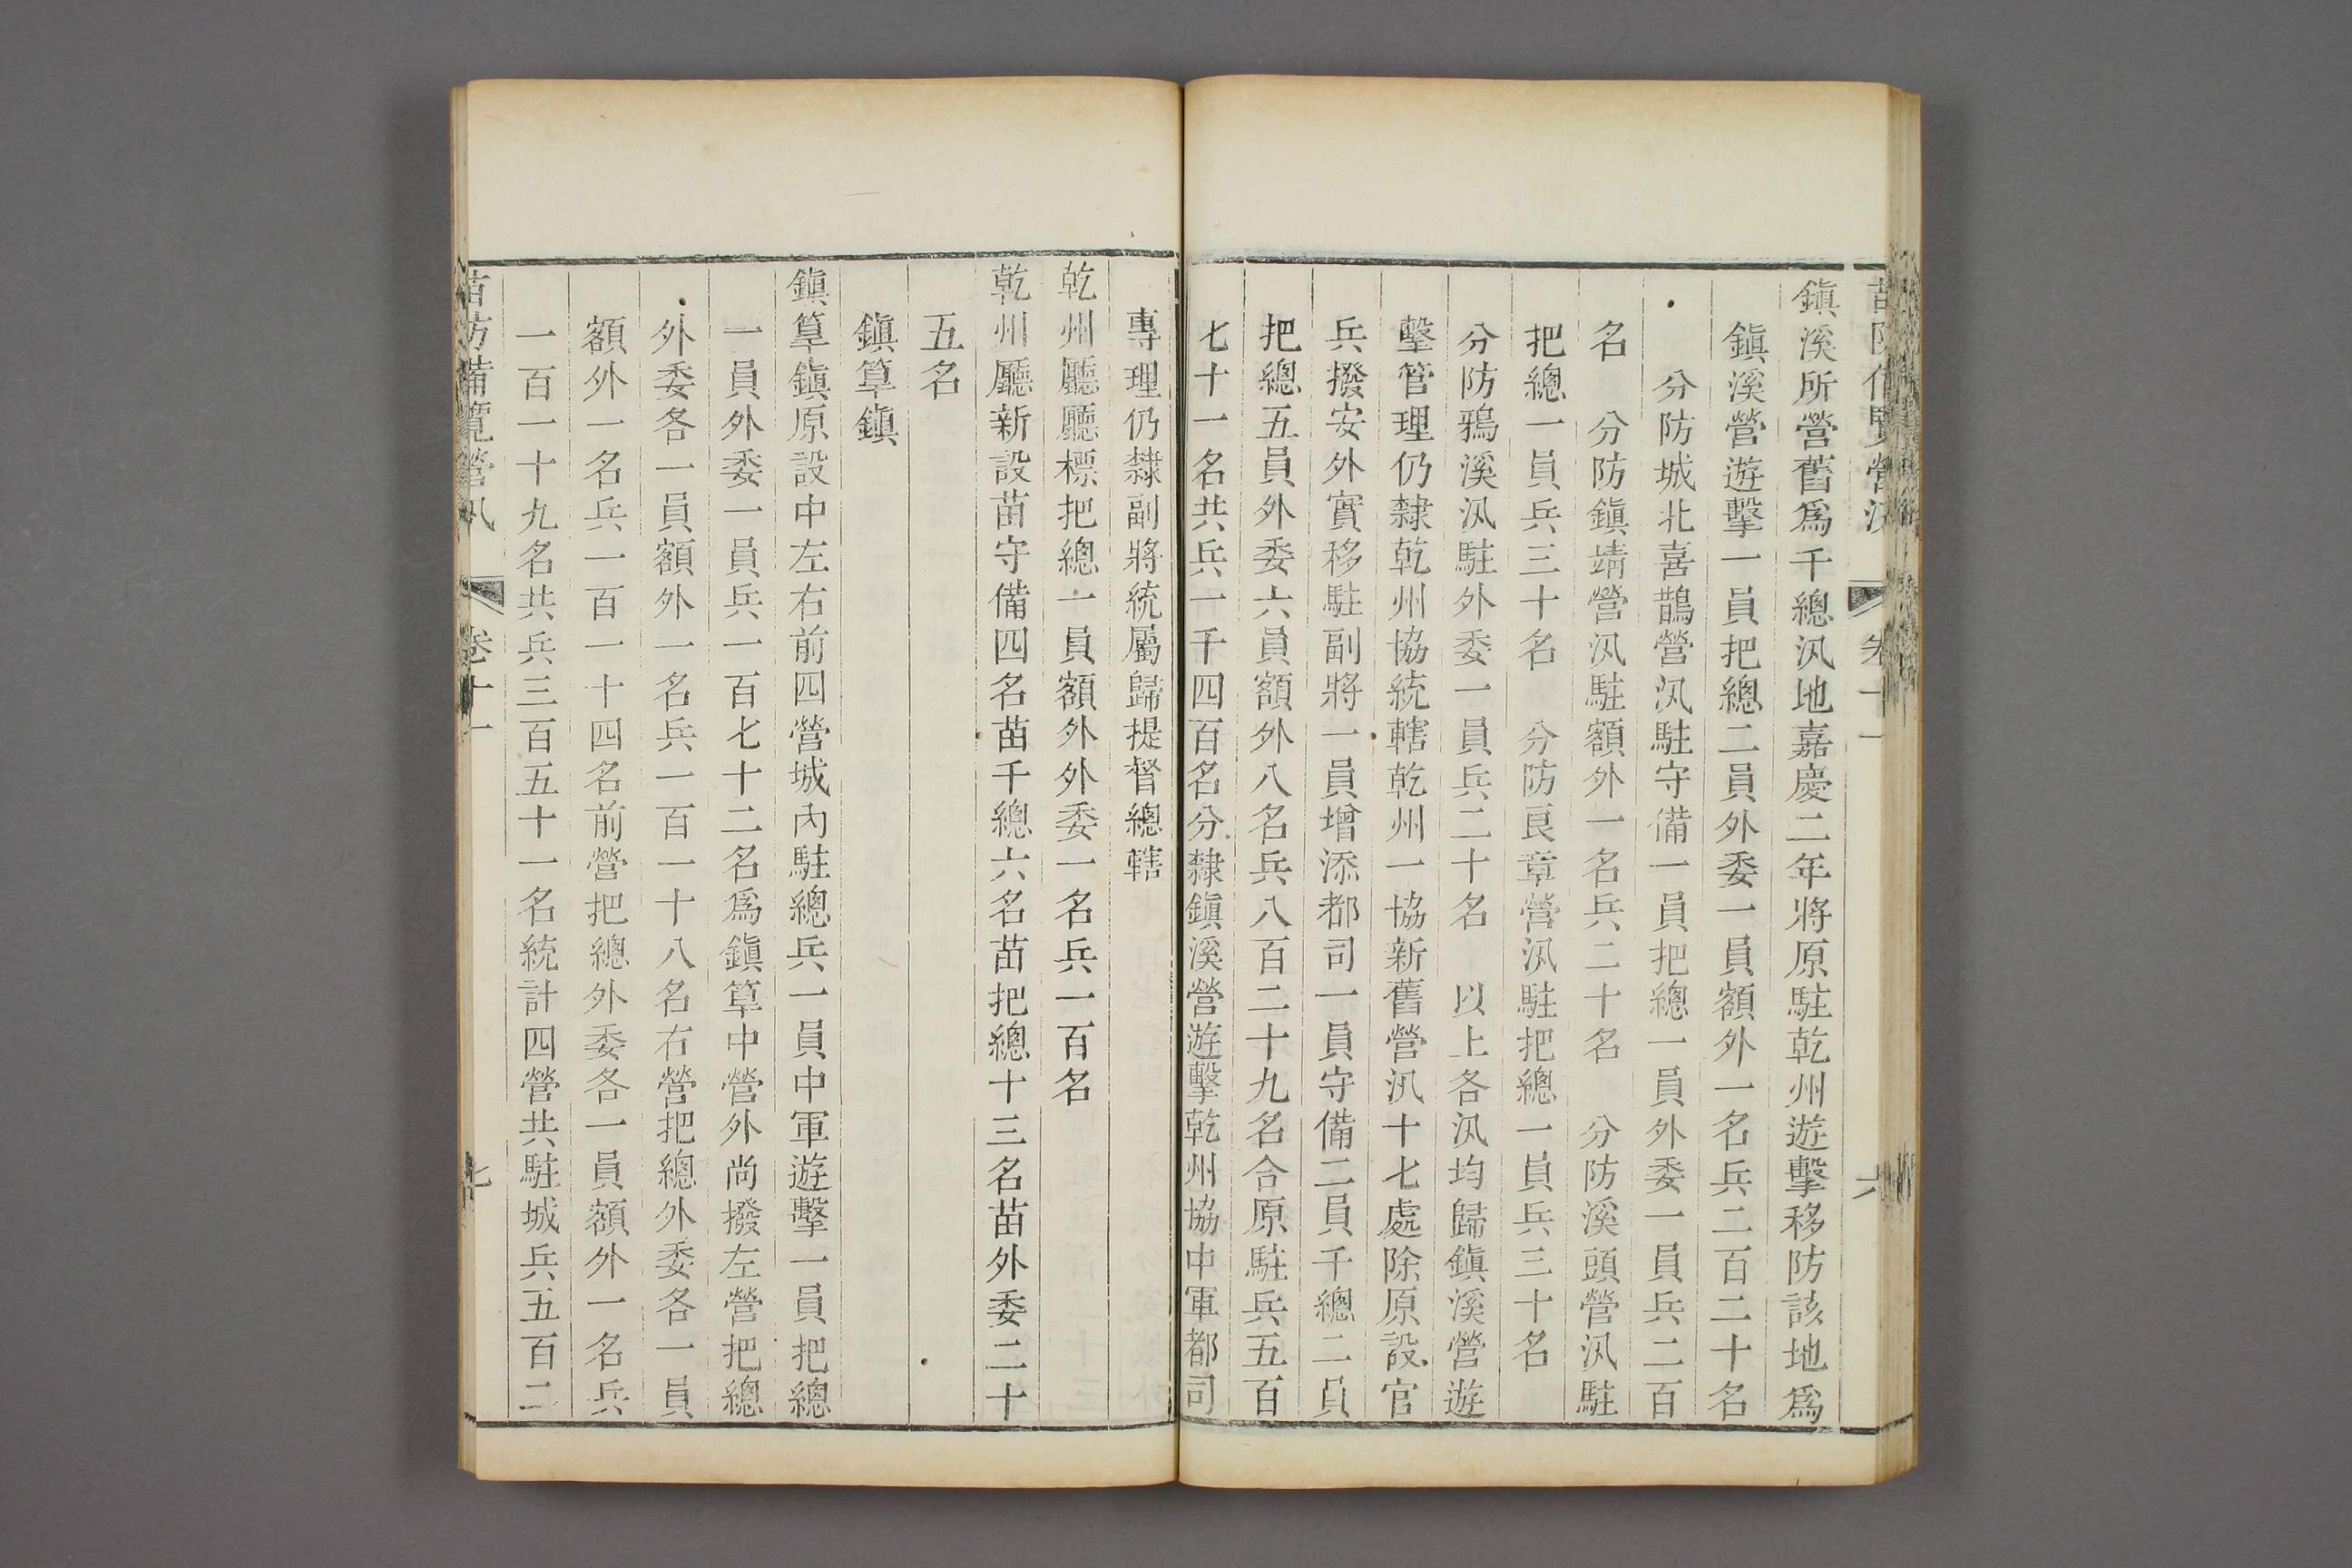 苗防備覽營汛 卷十一 六
鎭溪所營舊爲千總汛地嘉慶二年將原駐乾州遊擊移防該地爲
鎭溪營遊擊一員把總二員外委一員額外一名兵二百二十名
分防城北喜鵲營汛駐守備一員把總一員外委一員兵二百
名 分防鎭靖營汛駐額外一名兵二十名 分防溪頭營汛駐
把總一員兵三十名 分防良章營汛駐把總一員兵三十名
分防鴉溪汛駐外委一員兵二十名 以上各汛均歸鎭溪營遊
擊管理仍隸乾州協統轄乾州一協新舊營汛十七處除原設官
兵撥安外實移駐副將一員增添都司一員守備二員千總二員
把總五員外委六員額外八名兵八百二十九名合原駐兵五百
七十一名共兵一千四百名分隸鎭溪營遊擊乾州協中軍都司
專理仍隸副將統屬歸提督總轄
乾州廳廳標把總一員額外外委一名兵一百名
乾州廳新設苗守備四名苗千總六名苗把總十三名苗外委二十
五名
鎭筸鎭
鎭筸鎭原設中左右前四營城內駐總兵一員中軍遊擊一員把總
一員外委一員兵一百七十二名爲鎭筸中營外尚撥左營把總
外委各一員額外一名兵一百一十八名右營把總外委各一員
額外一名兵一百一十四名前營把總外委各一員額外一名兵
一百一十九名共兵三百五十一名統計四營共駐城兵五百二
苗防備覽營汛 卷十一 七